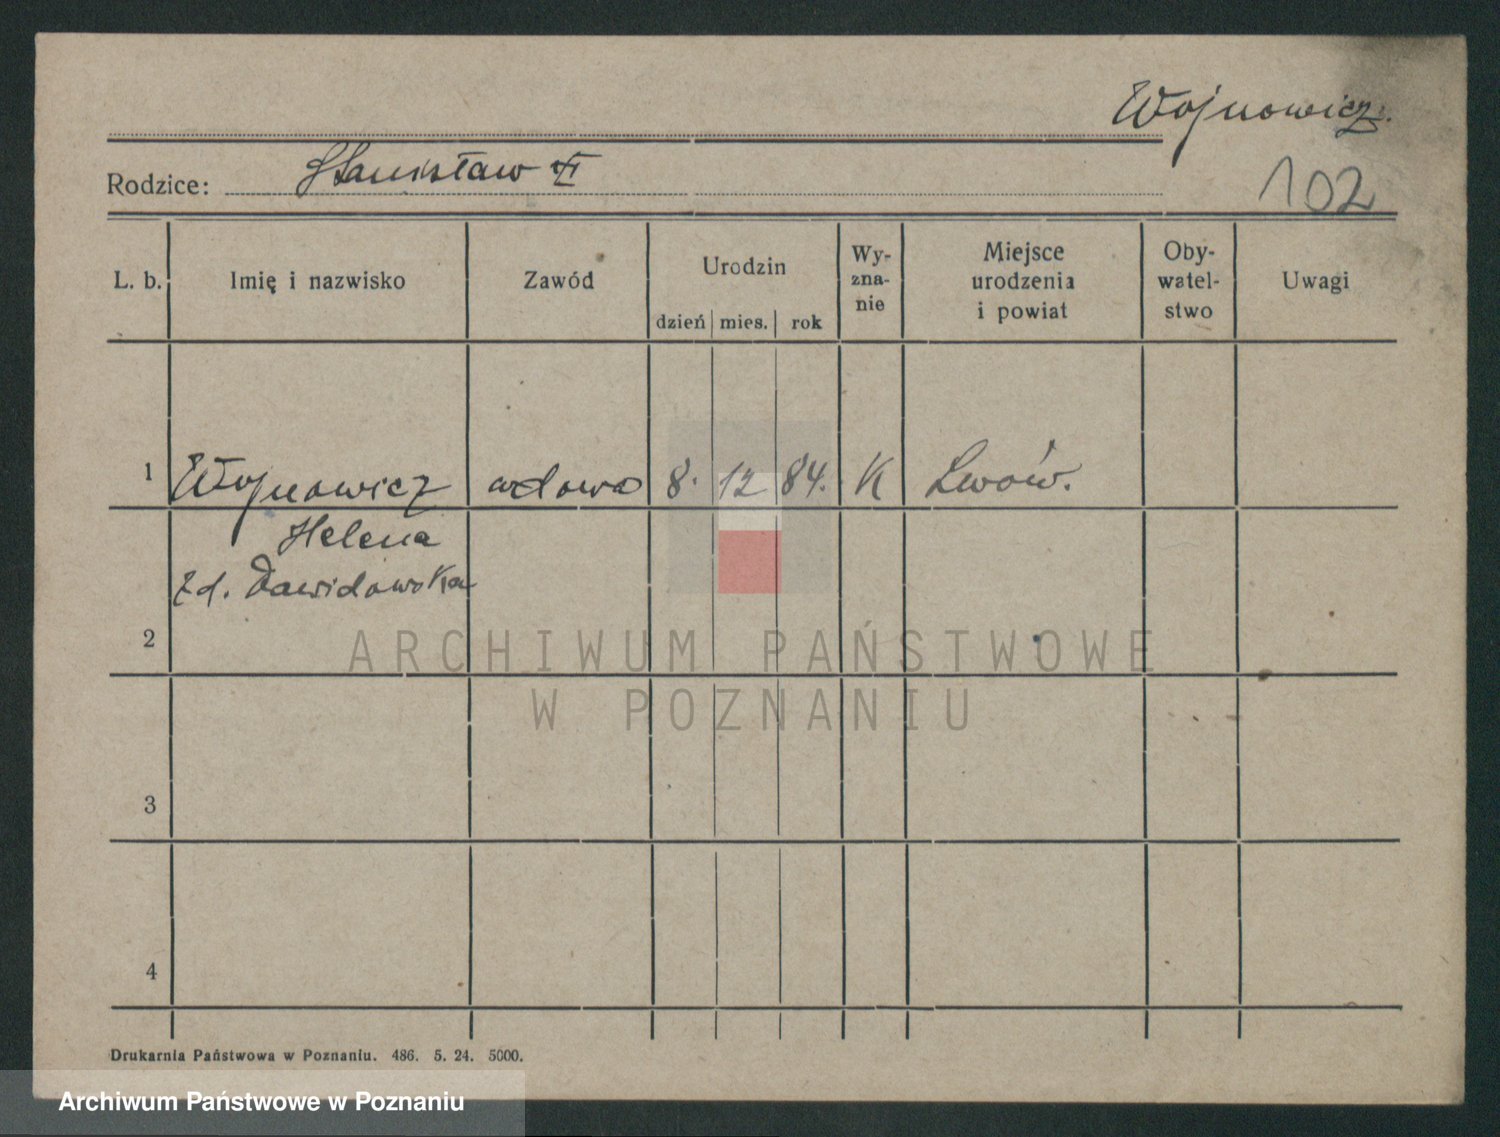 Wojnowicz.
Rodzice: Stanisław
102
L. b. Imię i nazwisko Zawód Urodzin Wy-zna-nie Miejsce urodzenia i powiat Oby-watel-stwo Uwagi
dzień mies. rok
1 Wojnowicz wdowa 8. 12 84. K Lwów.
Helena
zd. Dawidowska
2
ARCHIWUM PAŃSTWOWE
W POZNANIU
3
4
Drukarnia Państwowa w Poznaniu. 486. 5. 24. 5000.
Archiwum Państwowe w Poznaniu